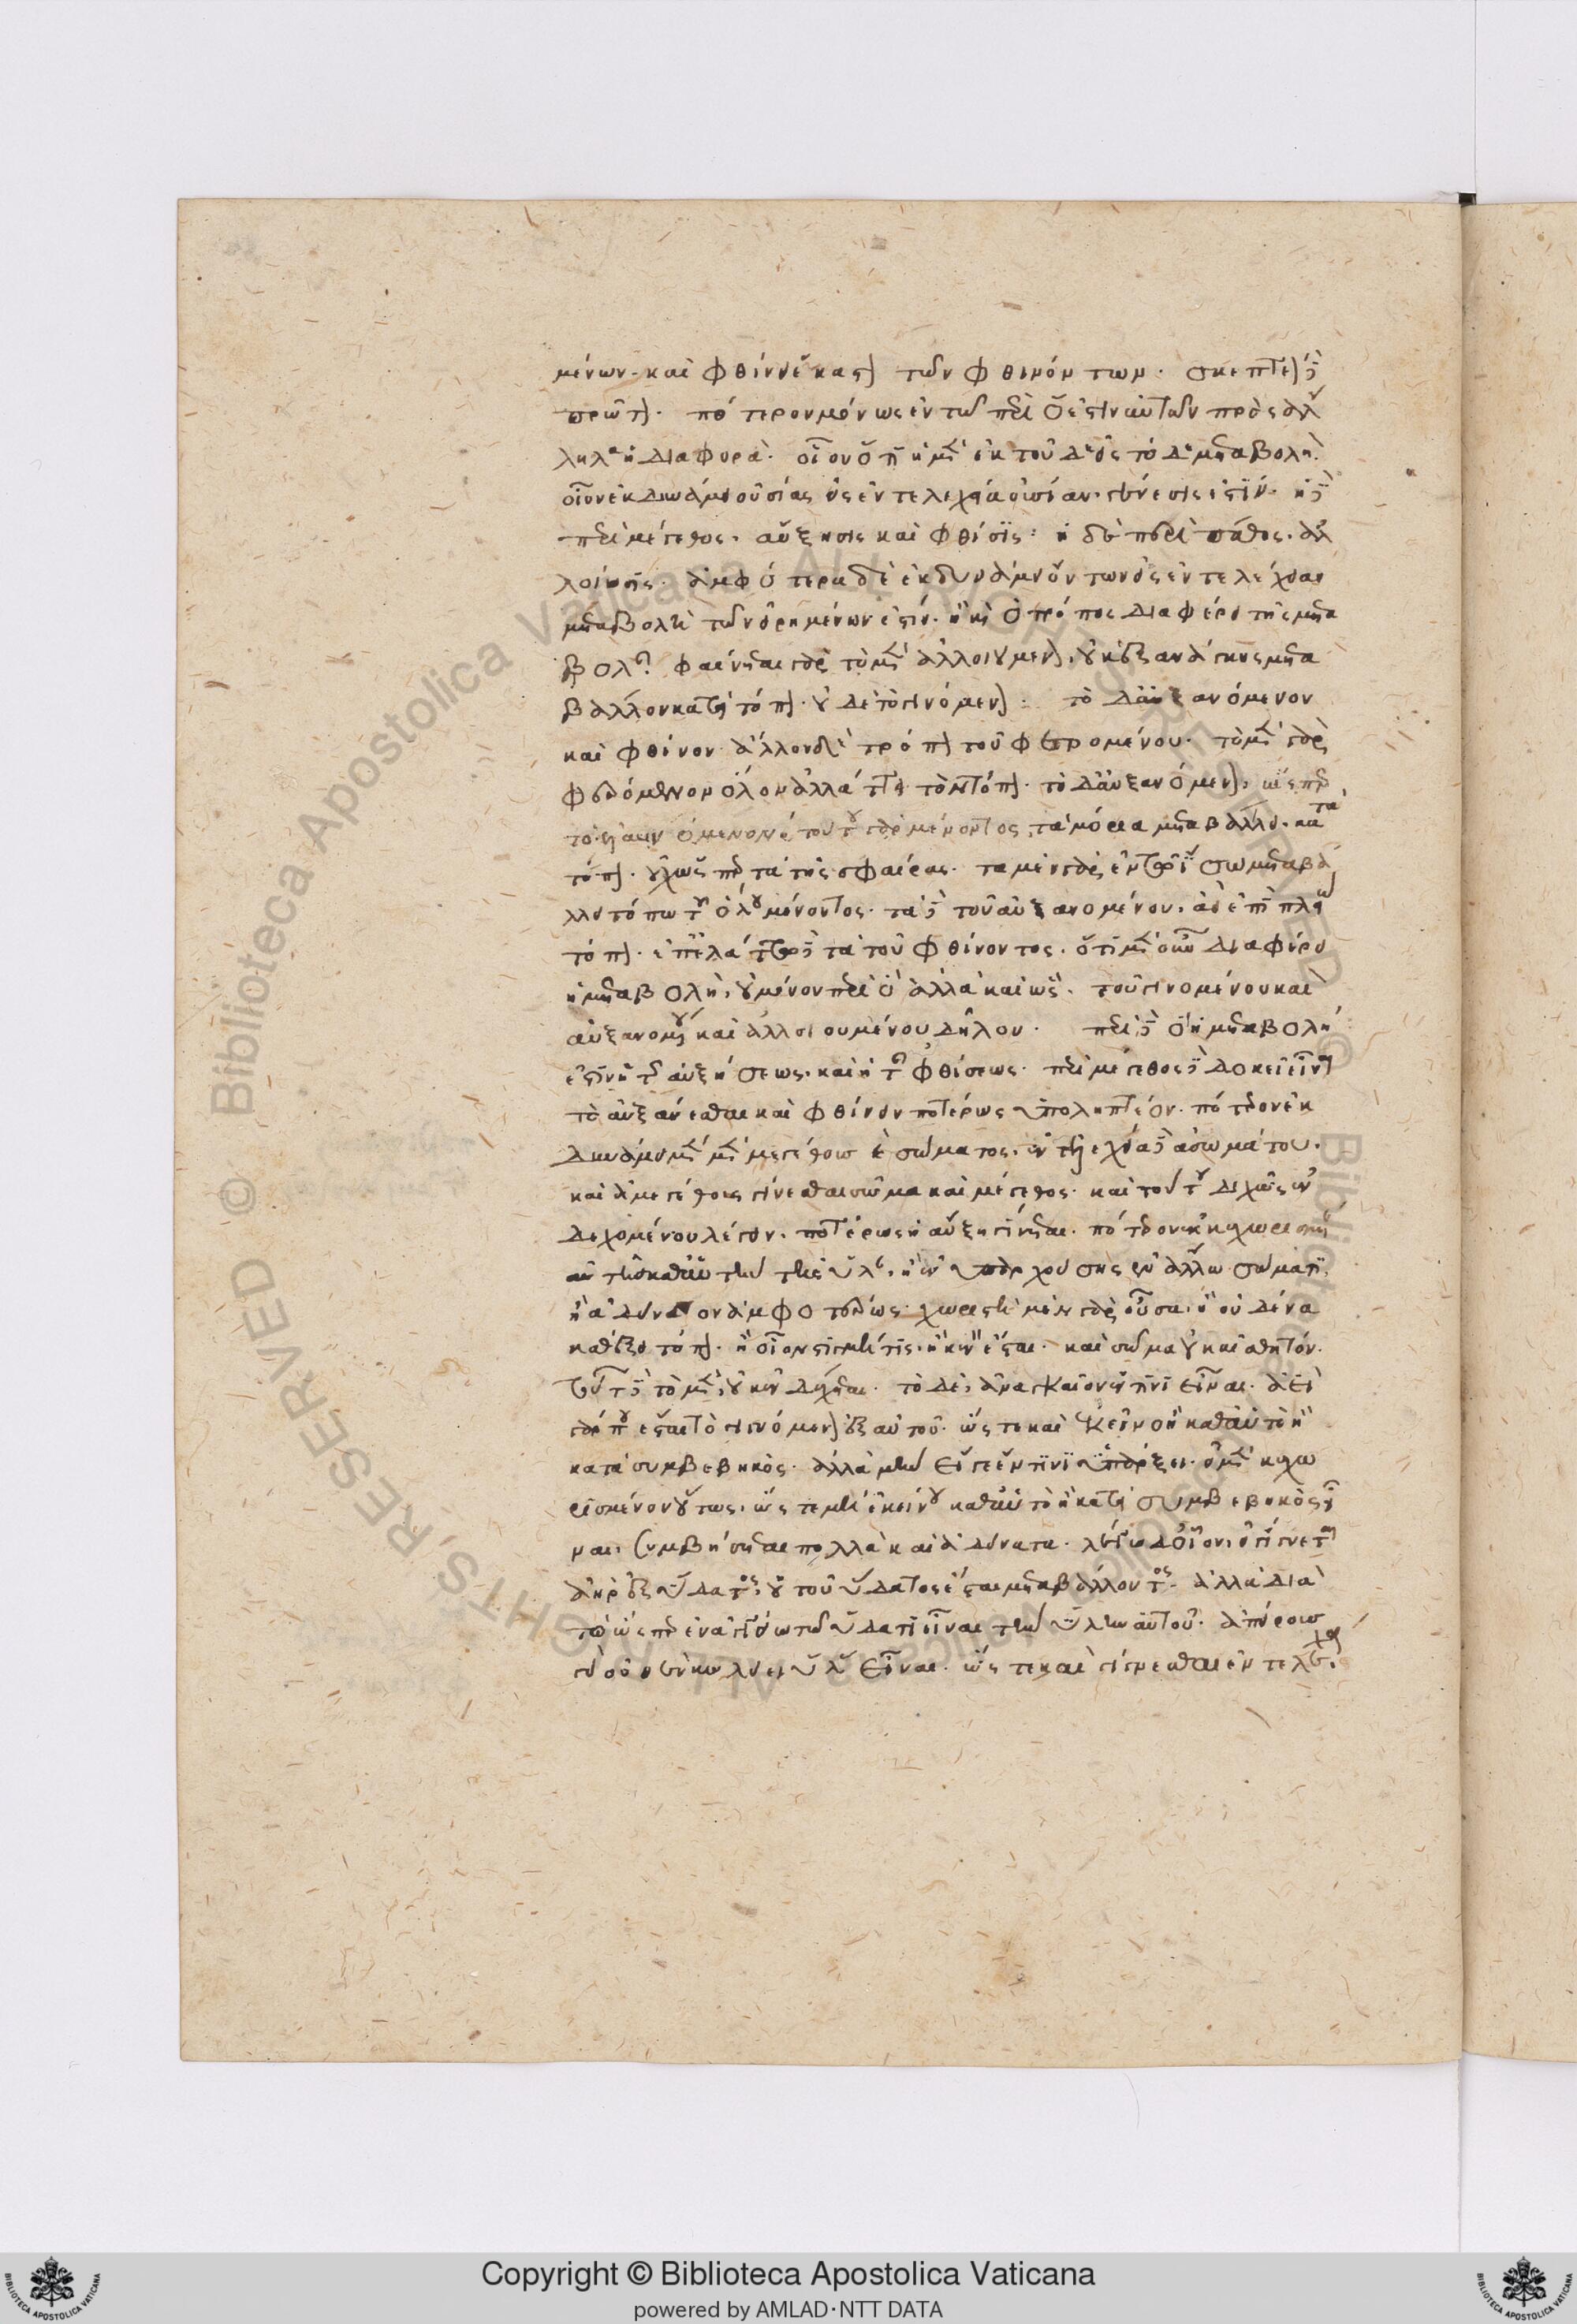 μένων. καὶ φθίνει ἕκαστον τῶν φθινόντων. σκεπτέον δὲ
πρῶτον. πότερον μόνως ἐν τῶ περὶ ὅ ἐστιν αὐτῶν πρὸς ἄλ
ληλα ἡ διαφορά. οἷον ὅτι ἡ μὲν ἐκ τοῦδε εἰς τόδε μεταβολή.
οἷον ἐκ δυνάμει οὐσίας εἰς ἐντελεχεία οὐσίαν. γένεσις ἐστίν. ἡ δὲ
περὶ μέγεθος. αὔξησις καὶ φθίσις· ἡ δὲ περὶ πάθος. ἀλ
λοίωσις. ἀμφότερα δὲ ἐκ δυνάμει ὄντων εἰς ἐντελέχειαν
μεταβολὴ τῶν εἰρημένων ἐστίν. ἢ καὶ ὁ τρόπος διαφέρει τῆς μετα
βολῆς φαίνεται γὰρ τὸ μὲν ἀλλοιούμενον, οὐκ ἐξ ἀνάγκης μετα
βάλλον κατὰ τόπον. οὐδὲ τὸ γινόμενον. τὸ δ' αὐξανόμενον
καὶ φθίνον. ἄλλον δὲ τρόπον τοῦ φερομένου. τὸ μὲν γὰρ
φερόμενον ὅλον ἀλλάττει τὸν τόπον. τὸ δ' αὐξανόμενον, ὥσπερ
τὸ ἐλαυνόμενον τούτου γὰρ μένοντος, τὰ μόρια μεταβάλλει. κατὰ
τόπον. οὐχ ὥσπερ τὰ τῆς σφαίρας. τὰ μὲν γὰρ ἐν τῶ ἴσω μεταβά
λλει τόπω τοῦ ὅλου μένοντος. τὰ δὲ τοῦ αὐξανομένου. ἀεὶ ἐπὶ πλείω
τόπον. ἐπ' ἐλάττω δὲ τὰ τοῦ φθίνοντος. ὅτι μὲν οὖν διαφέρει
ἡ μεταβολὴ, οὐ μόνον περὶ ὃ ἀλλὰ καὶ ὡς. τοῦ γινομένου καὶ
αὐξανομένου καὶ ἀλλοιουμένου δῆλον. περὶ δὲ ὃ ἡ μεταβολή
ἐστιν ἡ τῆς αὐξήσεως. καὶ ἡ τῆς φθίσεως. περὶ μέγεθος δὲ δοκεῖ εἶναι
τὸ αὐξάνεσθαι καὶ φθίνειν ποτέρως ὑποληπτέον. πότερον ἐκ
δυνάμει μὲν μεγέθους
καὶ ἀμεγέθους γίνεσθαι σῶμα καὶ μέγεθος. καὶ τούτου διχῶς ἐν
δεχομένου λέγειν. ποτέρως ἡ αὔξη γίνεται. πότερον ἐκ κεχωρισμέ
νης αὐτῆς καθ' αὑτὴν τῆς ὕλης. ἢ ἐνυπαρχούσης ἐν ἄλλω σώματι.
ἢ ἀδύνατον ἀμφοτέρως. χωριστὴ μὲν γὰρ οὖσα, ἢ οὐδένα
καθέξει τόπον. ἢ οἷον στιγμή τις. ἢ κενὸν ἔσται. καὶ σῶμα οὐκ αἰσθητόν.
τούτων δὲ τὸ μὲν, οὐκ ἐνδέχεται. τὸ δὲ, ἀναγκαῖον ἔν τινι εἶναι. ἀεὶ
γάρ που ἔσται τὸ γινόμενον ἐξ αὐτοῦ. ὥστε καὶ ἐκεῖνο ἢ καθ' αὑτὸ ἢ
κατὰ συμβεβηκός. ἀλλὰ μὴν εἴ γε ἔν τινι ὑπάρξει. εἰ μὲν κεχω
ρισμένον οὕτως. ὥστε μὴ ἐκείνου καθ' αὑτὸ ἢ κατὰ συμβεβηκός εἶ
ναι, συμβήσεται πολλὰ καὶ ἀδύνατα. λέγω δ' οἷον, εἰ γίνεται
ἀὴρ ἐξ ὕδατος, οὐ τοῦ ὕδατος ἔσται μεταβάλλοντος. ἀλλὰ διὰ
τὸ ὥσπερ ἐν ἀγγείω τῶ ὕδατι εἶναι τὴν ὕλην αὐτοῦ. ἀπείρους
γὰρ οὐδὲν κωλύει ὕλας εἶναι. ὥστε καὶ γίγνεσθαι ἐντελεχεία.